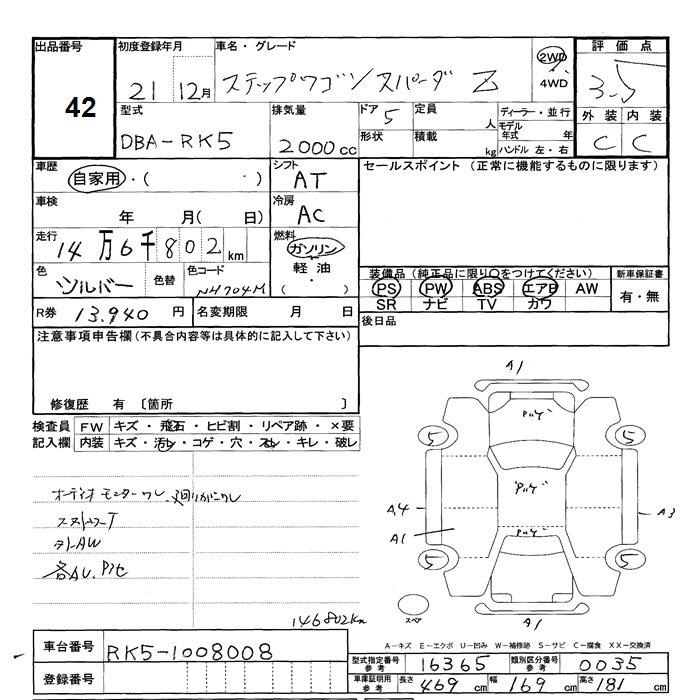 出品番号 初度登録年月 車名・グレード 2WD 評価点
42 21 12月 ステップワゴンスパーダ Z 4WD 3.5
型式 排気量 ドア 5 定員 人 ディーラー・並行 外装 内装
DBA-RK5 2000cc 形状 積載 kg モデル年式 年 C C
ハンドル 左・右
車歴 シフト セールスポイント (正常に機能するものに限ります)
自家用・( ・ ) AT
車検 冷房
年 月( 日) AC
走行 燃料
14万6千802km ガソリン
色 色替 色コード 軽油 装備品 (純正品に限り○をつけてください) 新車保証書
シルバー NH704M ・( ) PS PW ABS エアB AW 有・無
SR ナビ TV カワ
R券 13.940 円 名変期限 月 日 後日品
注意事項申告欄(不具合内容等は具体的に記入して下さい)
修復歴 有 〔箇所 〕
検査員 FW キズ・飛石・ヒビ割・リペア跡・×要
記入欄 内装 キズ・汚れ・コゲ・穴・スレ・キレ・破レ
オーディオモニターワレ
T
AW
146802km
A1
5 5
A4 A3
A1
5 5
スペア A1
A-キズ E-エクボ U-凹み W-補修跡 S-サビ C-腐食 XX-交換済
車台番号 RK5-1008008
登録番号
型式指定番号 参考 16365 類別区分番号 参考 0035
車庫証明用 参考 長さ 469 cm 幅 169 cm 高さ 181 cm